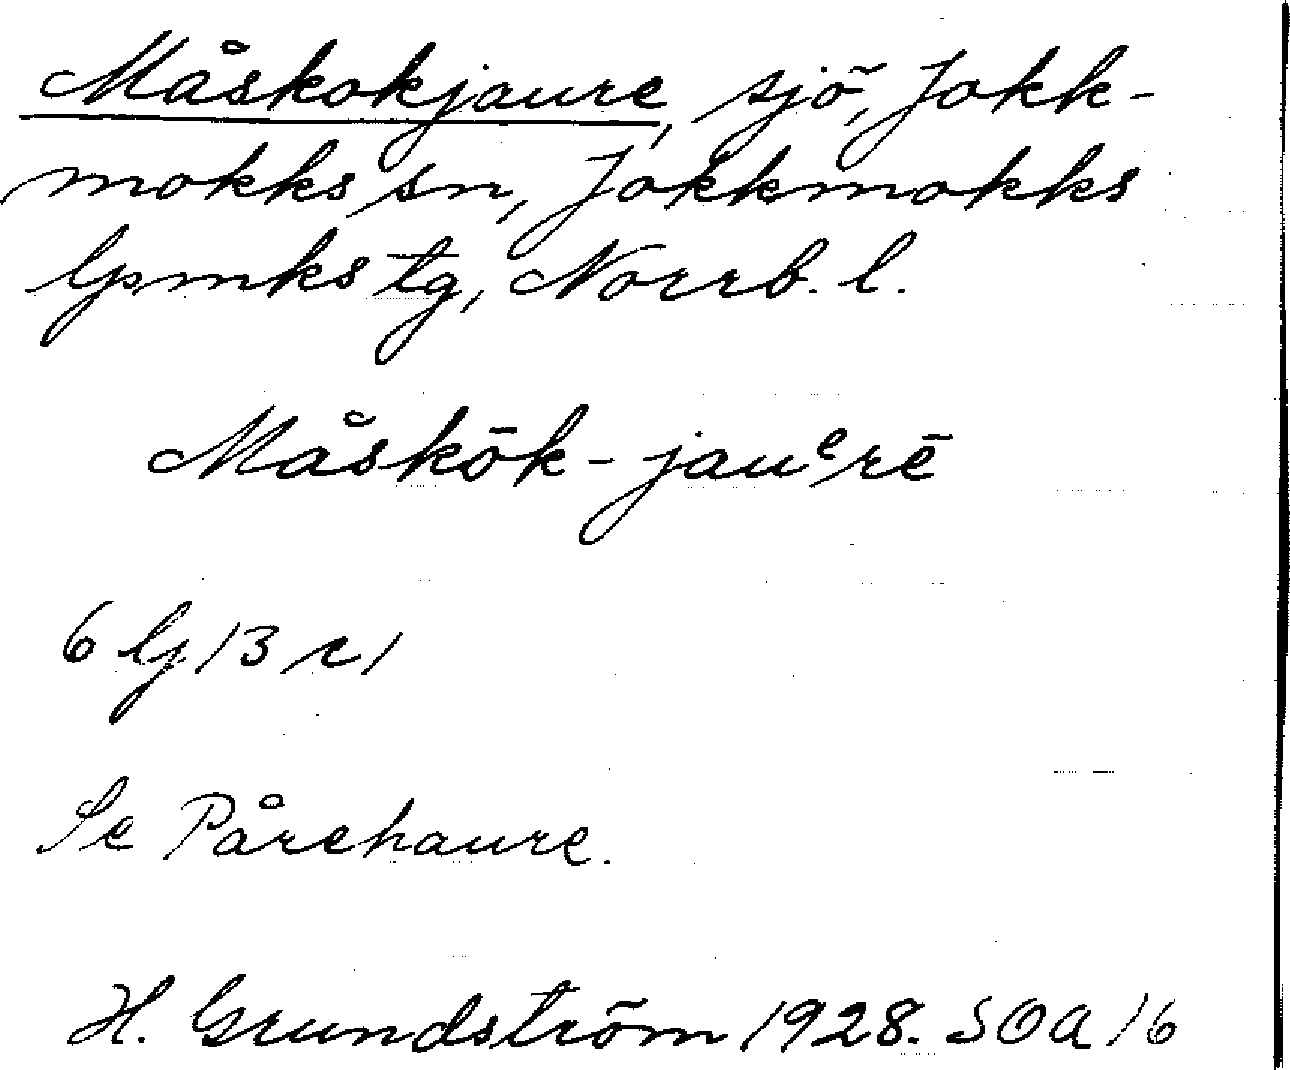 Måskokjaure, sjö, Jokk-
mokks sn, Jokkmokks
lpmks tg, Norrb. l.
Måskōk-jauᵉrē
6 lj 13 r 1
Se Pårehaure.
H. Grundström 1928. SOA 16